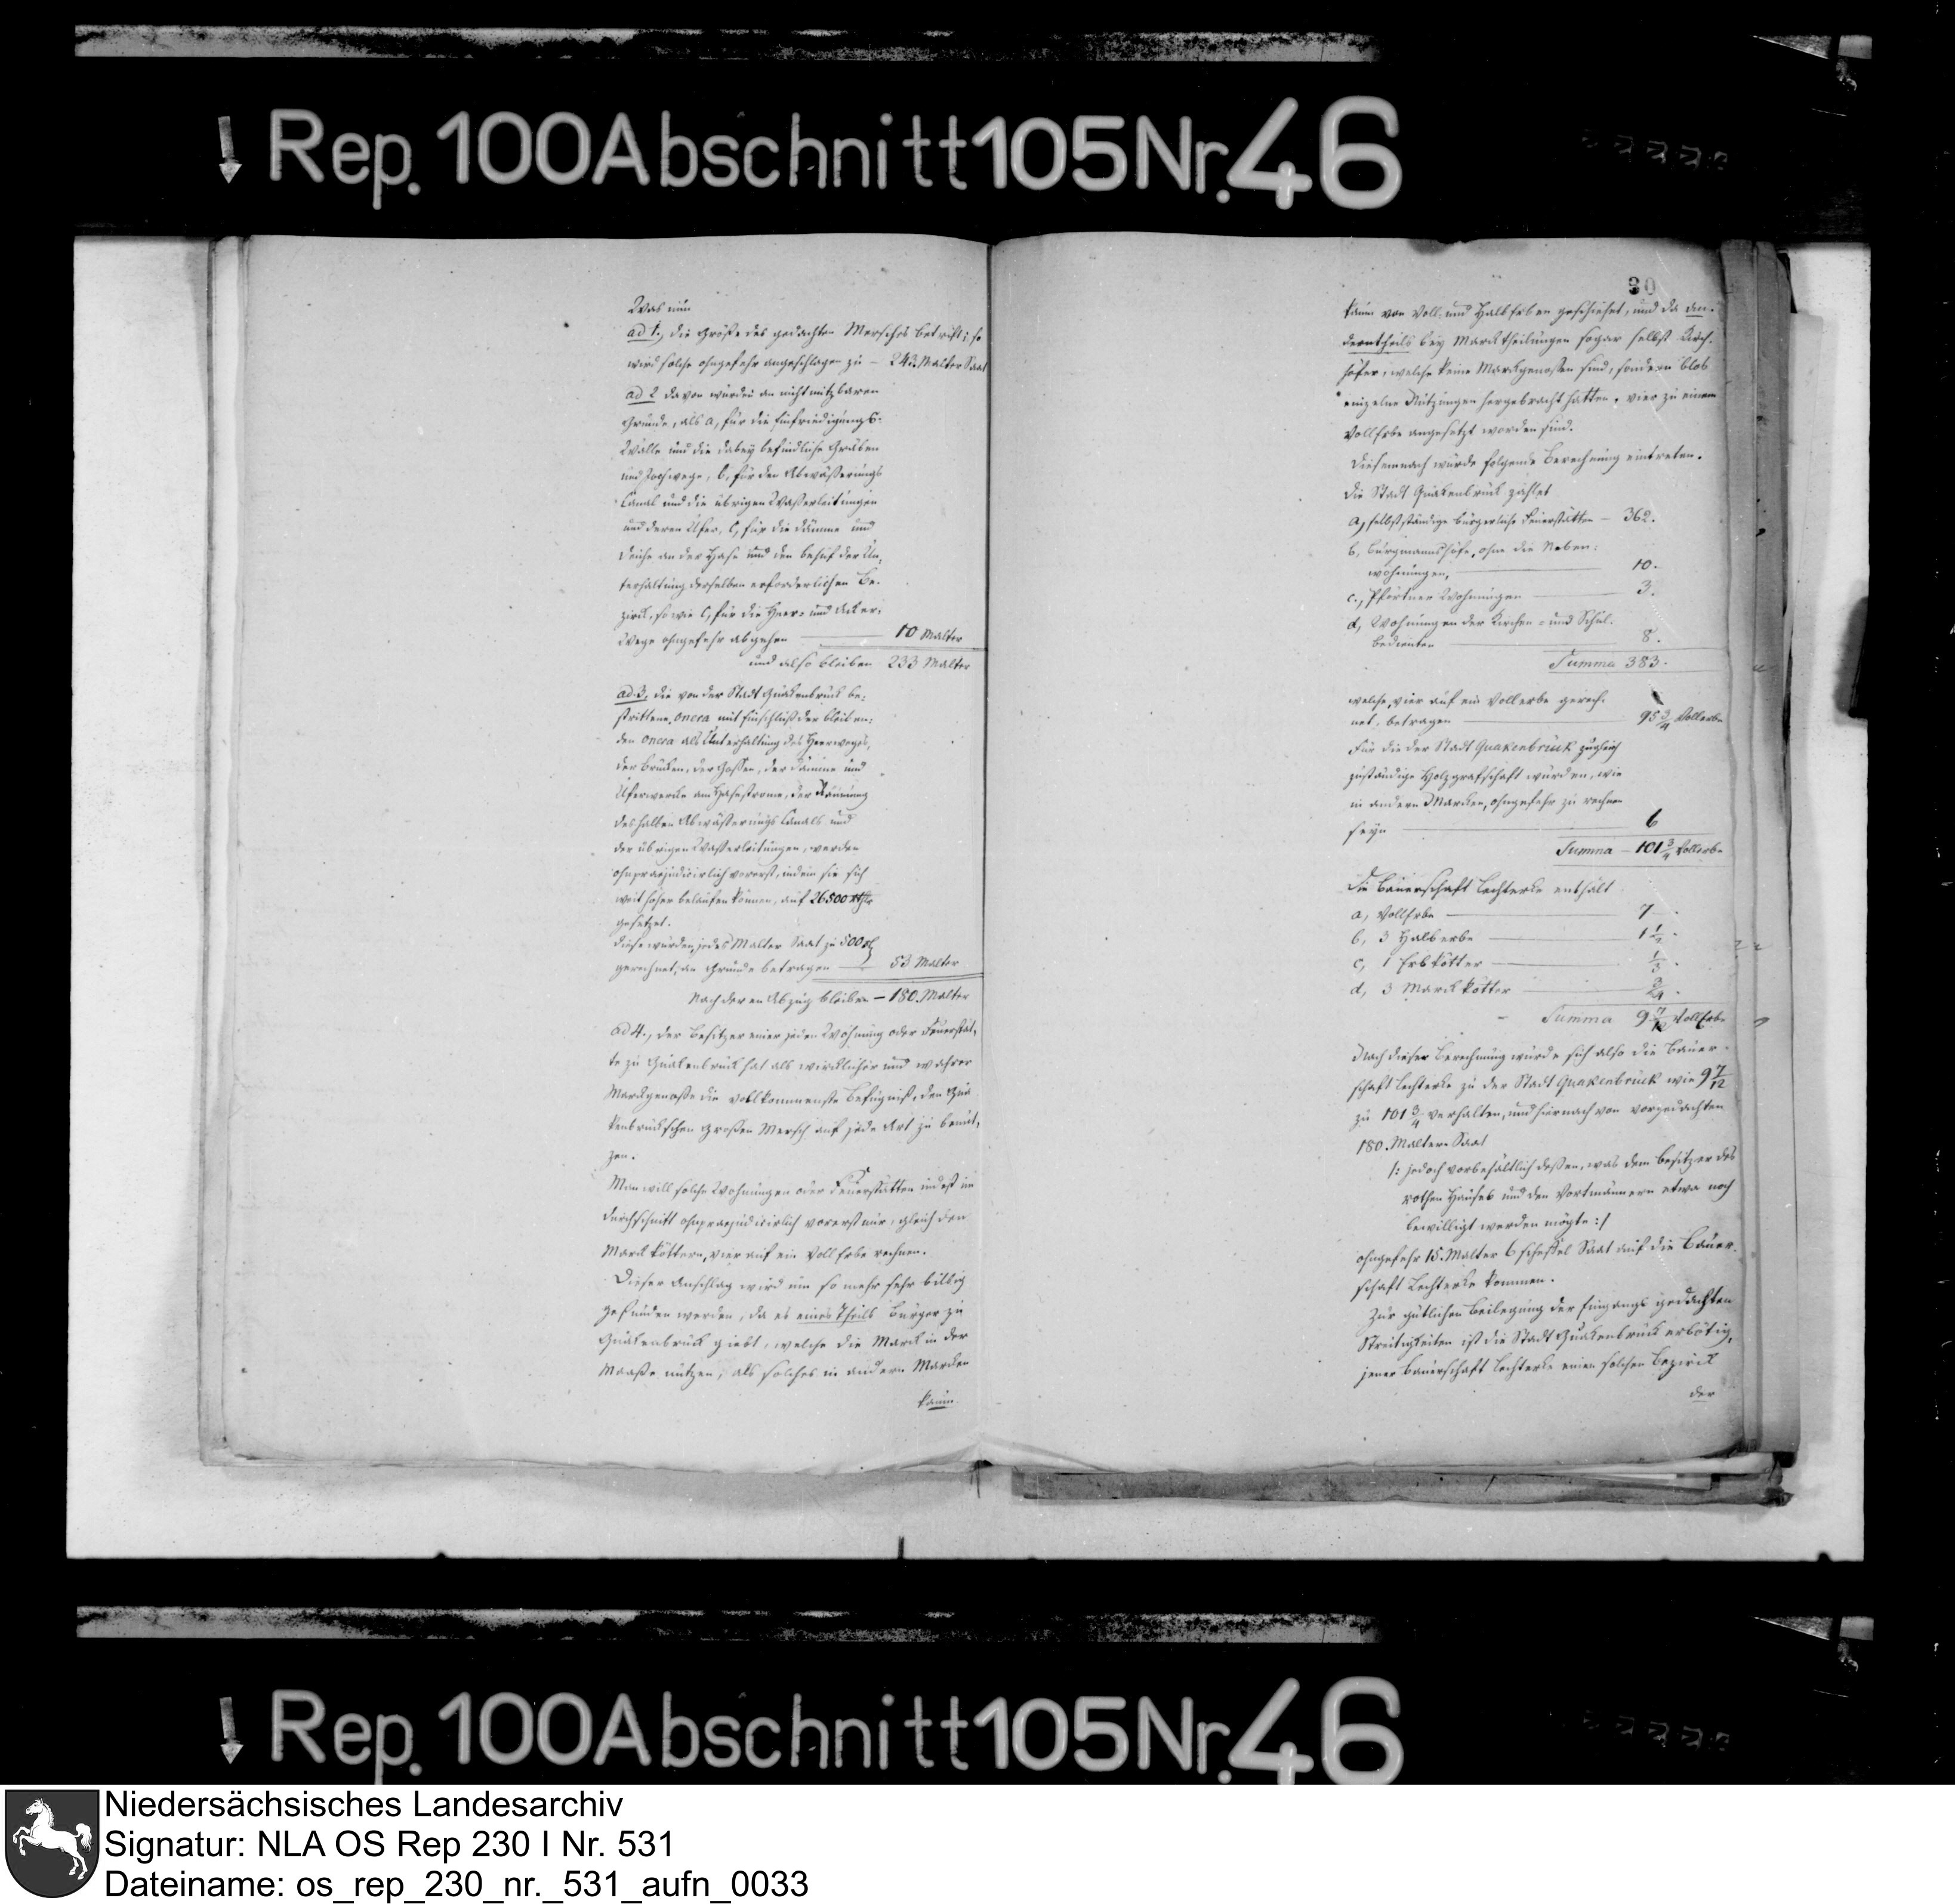 Rep. 100 Abschnitt 105 Nr. 46
Was nun
ad 1., die Größe des gedachten Mersches betrift; so
wird solche ohngefehr angeschlagen zu – 243. Malter Saat
ad 2 davon würden an nicht nutzbaren
Gründe, als a, für die Einfriedigungs-
Wälle und die dabey befindliche Gräben
und Fußwege, b, für den Abwässerungs
Canal und die übrigen Wasserleitungen
und deren Ufer, c, für die Dämme und
Deiche an der Hase und den behuf der Un-
terhaltung derselben erforderlichen Be-
zirck, so wie c, für die Heer- und Acker-
Wege ohngefehr abgehen — 10 Malter
und also bleiben 233 Malter
ad. 3. die von der Stadt Quakenbrück be-
strittene, onera mit Einschluß der bleiben-
den onera als Unterhaltung des Heerweges,
der Brücken, der Gossen, der Dämme und
Uferwercke am Hasestrome, der Räumung
des halben Abwässerungs Canals und
der übrigen Wasserleitungen, werden
ohnpraejudicirlich vorerst, indem sie sich
weit höher belaufen können, auf 26500 rthlr
gesetzet.
diese würden, jedes Malter Saat zu 500 rthlr
gerechnet, an Gründe betragen — 53 Malter
Nach deren Abzug bleiben – 180. Malter
ad 4., der Besitzer einer jeden Wohnung oder Feuerstät-
te zu Quakenbrück hat als wircklicher und wahrer
Marckgenosse die vollkommenste Befugniß, den Qua
kenbrückschen Großen Mersch auf jede Art zu benut-
zen.
Man will solche Wohnungen oder Feuerstätten indeß im
Durchschnitt ohnpraejudicirlich vorerst nur, gleich den
Marckköttern, vier auf ein Voll Erbe rechnen.
Dieser Anschlag wird um so mehr sehr billig
gefunden werden, da es eines Theils Bürger zu
Quakenbrück giebt, welche die Marck in der
Maaße nutzen, als solches in andern Marcken
kaum
30
kaum von Voll- und Halb Erben geschiehet, und da an-
derntheils bey Marcktheilungen sogar selbst Kirch-
höfer, welche keine Markgenossen sind, sondern blos
einzelne Nutzungen hergebracht hatten, vier zu einem
Voll Erbe angesetzt worden sind.
Diesemnach würde folgende Berechnung eintreten.
die Stadt Quakenbrück zählet
a, selbstständige bürgerliche Feuerstätten — 362.
b, Burgmannshöfe, ohne die Neben-
wohnungen, — 10.
c., Pförtner Wohnungen — 3.
d, Wohnungen der Kirchen- und Schul-
bedienten — 8.
Summa 383.
welche, vier auf ein Vollerbe gerech-
net, betragen — 95 3/4 Vollerbe
Für die der Stadt Quakenbrück zugleich
zuständige Holzgrafschaft würden, wie
in andern Marcken, ohngefehr zu rechnen
seyn — 6
Summa – 101 3/4 Vollerbe
Die Bauerschaft Lechterke enthält
a, VollErbe — 7
b, 3 Halberbe — 1 1/2.
c, 1 Erbkötter — 1/3.
d, 3 Marckkötter — 3/4.
Summa 9 7/12 VollErbe
Nach dieser Berechnung würde sich also die Bauer-
schaft Lechterke zu der Stadt Quakenbrück wie 9 7/12
zu 101 3/4 verhalten, und hiernach von vorgedachten
180. Malter Saat
/: jedoch vorbehältlich dessen, was dem Besitzer des
rothen Hauses und den Vortmännern etwa noch
bewilligt werden mögte :/
ohngefehr 15. Malter 6 scheffel Saat auf die Bauer-
schaft Lechterke kommen.
Zur gütlichen Beilegung der Eingangs gedachten
Streitigkeiten ist die Stadt Quakenbrück erbötig,
jener Bauerschaft Lechterke einen solchen Bezirck
der
Rep. 100 Abschnitt 105 Nr. 46
Niedersächsisches Landesarchiv
Signatur: NLA OS Rep 230 I Nr. 531
Dateiname: os_rep_230_nr._531_aufn_0033